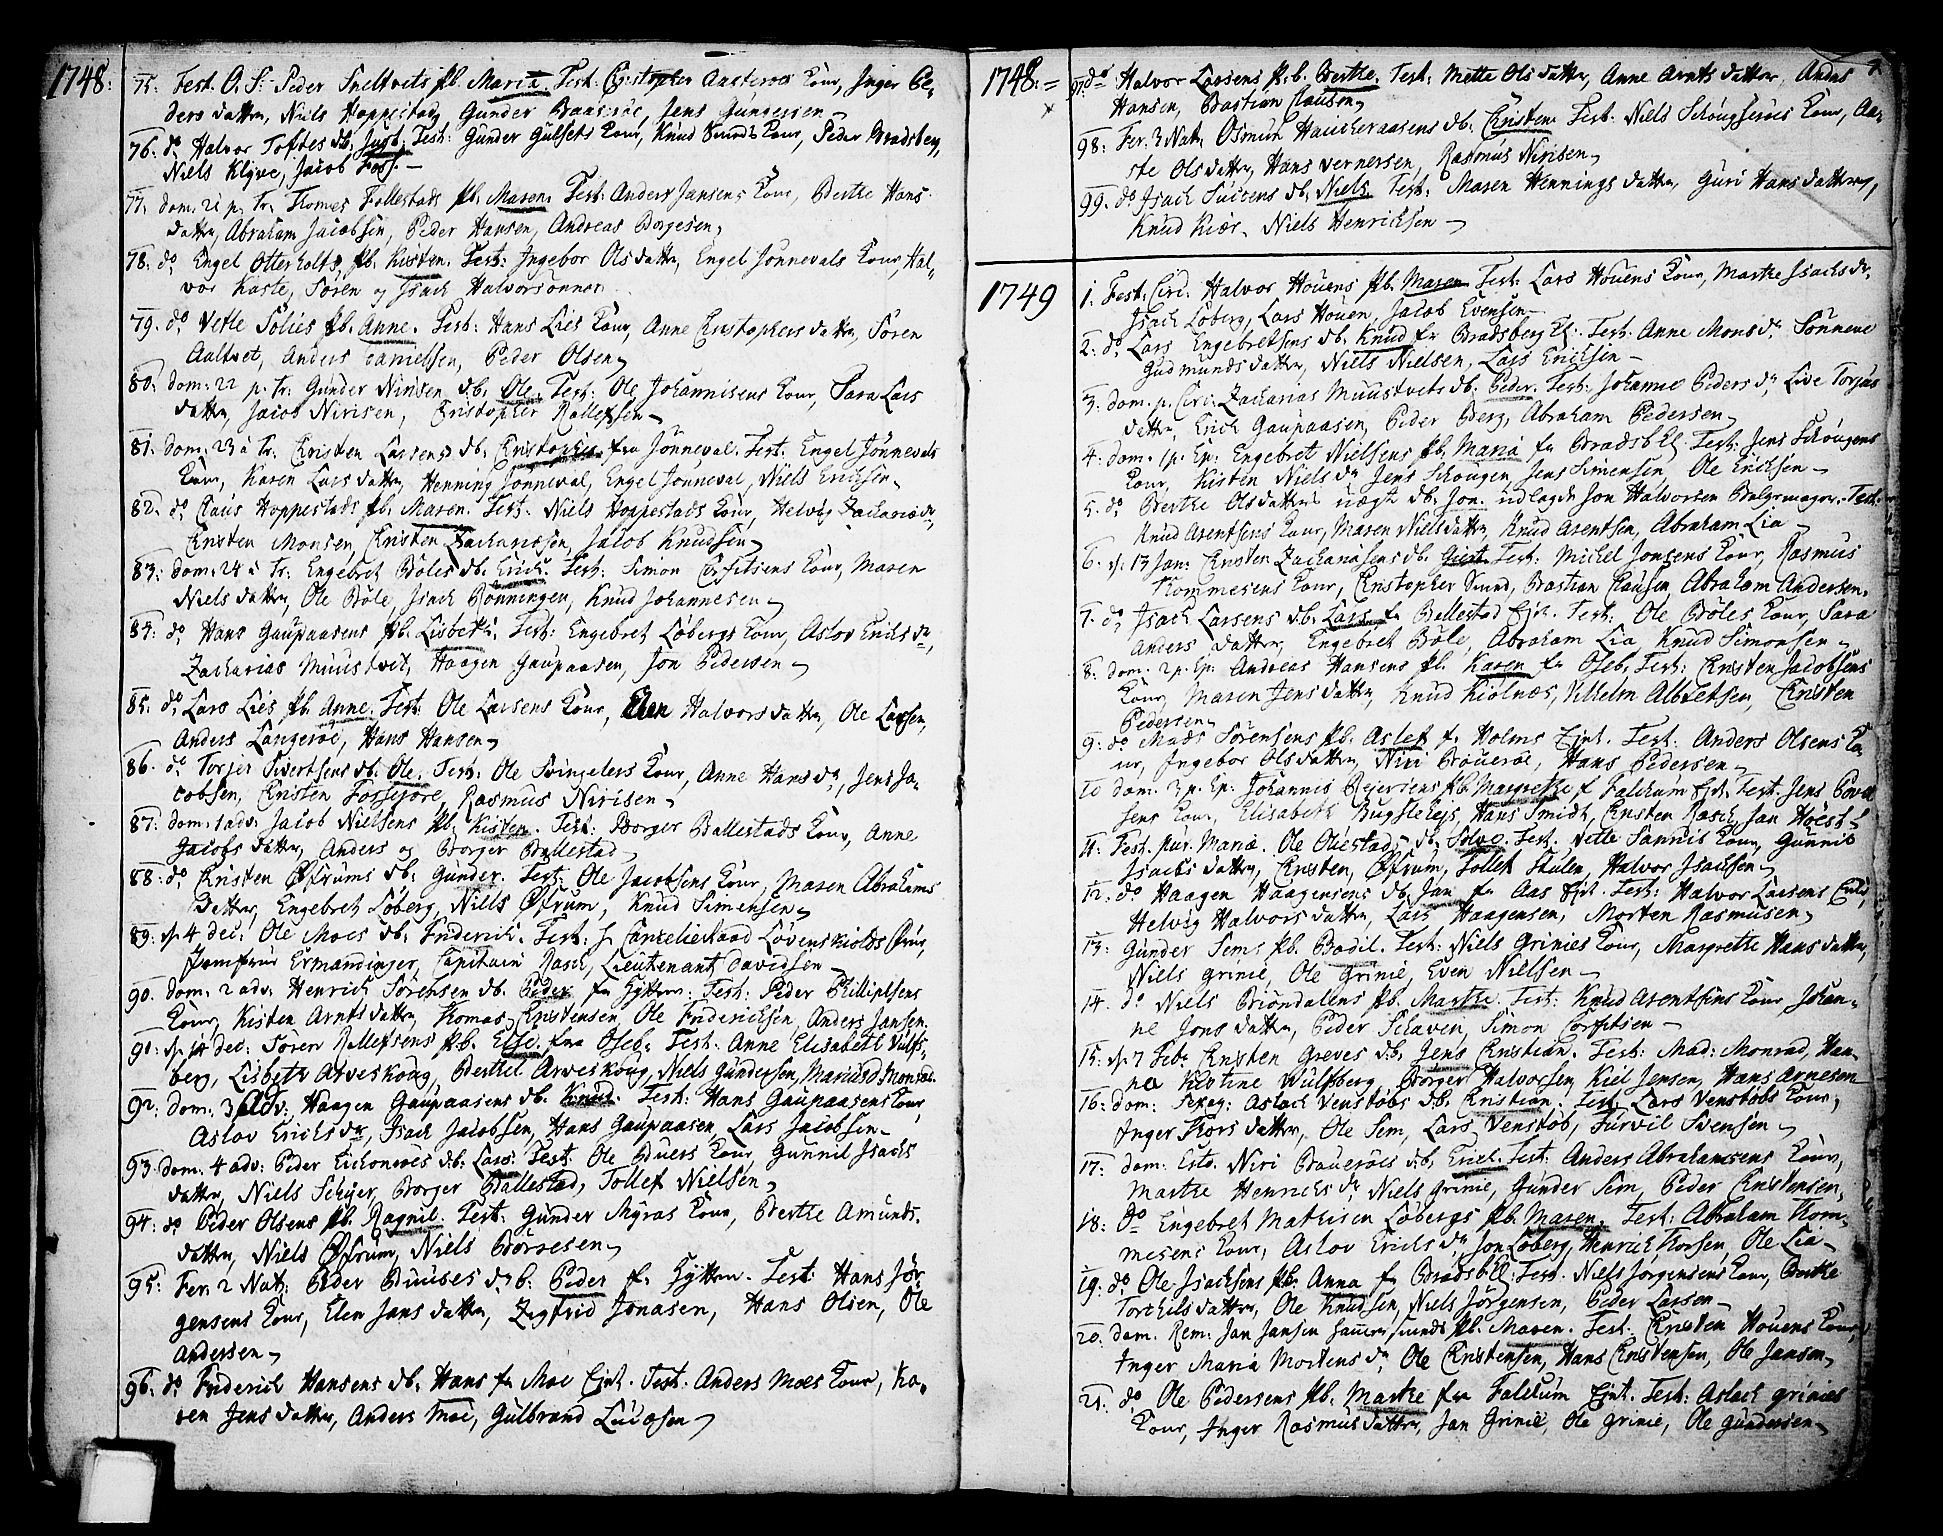 1748:
75. Fest. O. S: Peder Sneltvets pb. Maria. Test: Christopher Aasteroes Kone, Inger Pe-
ders datter, Niels Hoppestad, Gunder Jens Gundersen
76. do Halvor Toftes db. Just. Test: Gunder Gulsets Kone, Knud Sunds Kone, Peder Bradsberg,
Niels Klyve, Jacob Foss. –
77. dom: 21 p. Tr. Thomas Follestads pb. Maren. Test: Anders Jansens Kone, Berthe Hans-
datter, Abraham Jacobsen, Peder Hansen, Andreas Borgesen,
78. do Engel Otterholts pb. Kisten. Test: Ingebor Ols datter, Engel Jønnevals Kone, Hal-
vor Kaste, Søren og Isach Halvorsønner
79. do Vetle Solies pb. Anne. Test: Hans Lies Kone, Anne Christophers datter, Søren
Aaltvet, Anders Danielsen, Peder Olsen,
80. dom: 22 p. Tr. Gunder Nirisen db. Ole. Test: Ole Johannesens Kone, Sara Lars
datter, Jacob Nirisen, Christopher Rollefsen
81. dom: 23 à Tr. Christen Larsens db. Christopher fra Jønneval. Test: Engel Jønnevals
Kone, Karen Lars datter, Henning Jønneval, Engel Jønneval, Niels Erichsen,
82. do Claus Hoppestads pb. Maren. Test: Niels Hoppestads Kone, Helvig Zacharie dr
Christen Monsen, Christen Zachariesen, Jacob Knudsen
83. dom: 24 à Tr: Engebret Bøles db. Erich. Test: Simon Corfitsens Kone, Maren
Niels datter, Ole Bøle, Isach Bønningen, Knud Johannesen
84. do Hans Gaupaasens pb. Lisbeth. Test: Engebret Løbergs Kone, Aslov Erichs dr,
Zacharias Muustvet, Haagen Gaupaasen, Jon Pedersen
85. do Lars Lies pb. Anne. Test: Ole Larsens Kone, Elen Halvors datter, Ole Larsen,
Anders Langerøe, Hans Hansen
86. do Torger Sivertsens db. Ole. Test: Ole Svingelers Kone, Anne Hans dr, Jens Ja-
cobsen, Christen Fossejore, Rasmus Nirisen
87. dom: 1 adv: Jacob Nielsens pb. Kisten. Test: Borger Ballestads Kone, Anne
Jacobs datter, Anders og Borger Ballestad
88. do Christen Øfrums db. Gunder. Test: Ole Jacobsens Kone, Maren Abrahams
datter, Engebret Løberg, Niels Øfrum, Knud Simensen
89. d. 4 dec: Ole Moes db. Friderich. Test: Hr Cancelieraad Løvenskiolds Frue,
Jomfrue Ermandinger, Capitain Rasch, Lieutenant Davidsen
90. dom: 2 adv: Henrich Sørensens db. Peder fr Hytten. Test: Peder Phillipsens
Kone, Kisten Arnts datter, Thomas Christensen, Ole Friderichsen, Anders Jansen.
91. d. 14 dec: Søren Rollefsens pb. Else fra Oseb. Test: Anne Elisabeth Vulfs-
berg, Lisbeth Arveskoug, Berthel Arveskoug, Niels Gundersen, Marius d Monrad
92. dom: 3 adv: Haagen Gaupaasens db. Knud. Test: Hans Gaupaasens Kone,
Aslov Erichs dr, Isach Jacobsen, Hans Gaupaasen, Lars Jacobsen
93. dom: 4 adv: Peder Eichoneves db. Lars. Test: Ole Buers Kone, Gunnil Isachs
datter, Niels Schyer, Borger Ballestad, Tollef Nielsen,
94. do Peder Olsens pb. Ragnil. Test: Gunder Myras Kone, Berthe Amunds-
datter, Niels Øfrum, Niels Børresen
95. Fer: 2 Nat: Peder Buuses db. Peder fr Hytten. Test: Hans Jør-
gensens Kone, Elen Jans datter, Zigfrid Jonasen, Hans Olsen, Ole
Andersen
96. do Friderich Hansens db. Hans fr Moe Eje. Test: Anders Moes Kone, Ka-
ren Jens datter, Anders Moe, Gulbrand Lucasen
1748. =
97. do Halvor Larsens pb. Berthe. Test: Mette Ols datter, Anne Arnts datter, Anders
Hansen, Bastian Clausen
98. Fer. 3 Nat. Osmun Hauckeraasens db. Christen. Test: Niels Schougseroes Kone, Aa-
ste Ols datter, Hans Vernersen, Rasmus Nirisen
99. do Isach Suisens db. Niels. Test: Maren Hennings datter, Guri Hans datter,
Knud Kiær, Niels Henrichsen
1749
1. Fest. Circ. Halvor Houens pb. Maren. Test: Lars Houens Kone, Marthe Isachs dr,
Isach Løberg, Lars Houen, Jacob Evensen
2. do Lars Engebretsens db. Knud fr Bradsberg Ej. Test: Anne Mons dr, Sønneve
Gudmunds datter, Niels Nielsen, Lars Erichsen
3. dom. p. Circ: Zacharias Muustvets db. Peder. Test: Johanne Peders dr, Live Torjus
datter, Erich Gaupaasen, Peder Berg, Abraham Pedersen
4. dom. 1 p. Ep: Engebret Nielsens pb. Maria fr Bradsb: Ej. Test: Jens Schougens
Kone, Kisten Niels dr, Jens Schougen, Jens Simensen, Ole Erichsen
5. do Berthe Ols datters uægte db. Jon. udlagde Jon Halvorsen Test:
Knud Arentsens Kone, Maren Niels datter, Knud Arentsen, Abraham Lia
6. d. 13 Jan: Christen Zachariasens db. Test: Michel Jonsens Kone, Rasmus
Thommesens Kone, Christopher Sund, Bastian Clausen, Abraham Andersen.
7. do Isach Larsens db. Lars fr Ballestad Eje. Test: Ole Bøles Kone, Sara
Anders datter, Engebret Bøle, Abraham Lia, Knud Simonsen
8. dom. 2 p. Ep: Andreas Hansens pb. Karen fr Oseb. Test: Christen Jacobsens
Kone, Maren Jens datter, Knud Kiølnæs, Vilhelm Albretsen, Christen
Pedersen
9. do Mads Sørensens pb. Aslef fr Holms Eje. Test: Anders Olsens Ko-
ne, Ingebor Ols datter, Niri Bouerøe, Hans Pedersen
10. dom. 3 p. Ep: Johannis Rejersens pb. Margrethe f Falchum Eje. Test: Jens Povel
sens Kone, Elisabeth Hans Smidt, Christen Rasch, Jan Høest
11. Fest. pur. Mariæ. Ole Oliestads db. Test: Vetle Sannis Kone, Gunnil
Isachs datter, Christen Øfrum, Tollef Skulen, Halvor Isachsen
12. do Haagen Haagensens db. Jan fr Aas Eje. Test: Halvor Larsens Kone,
Helvig Halvors datter, Lars Haagensen, Morten Rasmusen,
13. Gunder Sems pb. Bodil. Test: Niels Grinies Kone, Margrethe Hans datter,
Niels Grinie, Ole Grinie, Even Nielsen
14. do Niels Briøndalens pb. Marthe. Test: Knud Arentsens Kone, Johan-
ne Jons datter, Peder Schaven, Simon Corfitsen
15. d. 7 Feb: Christen Greves db. Jens Christian. Test: Mad: Monrad, Han-
na Kistine Wulfsberg, Borger Halvorsen, Kiel Jensen, Hans Arnesen
16. dom: Sexag: Aslach Venstøbs db. Christian. Test: Lars Venstøbs Kone,
Inger Thors datter, Ole Sem, Lars Venstøb, Turvil Svensen
17. dom: Esto. Niri Bouerøes db. Erich. Test: Anders Abrahamsens Kone,
Marthe Henrichs dr, Niels Grinie, Gunder Sem, Peder Christensen,
18. do Engebret Mathisen Løbergs pb. Maren. Test: Abraham Thom-
mesens Kone, Aslov Erichs dr, Jon Løberg, Henrich Thorsen, Ole Lia
19. do Ole Isachsens pb. Anna fr Bradsb. Ej. Test: Niels Jørgensens Kone, Berthe
Torchils datter, Ole Knudsen, Niels Jørgensen, Peder Larsen
20. dom. Rem: Jan Jansen pb. Maren. Test: Christen Houens Kone,
Inger Maria Mortens dr, Ole Christensen, Hans Christensen, Ole Jansen
21. do Ole Pedersens pb. Marthe fra Falchum Eje. Test: Aslach Grinies
Kone, Inger Rasmus datter, Jan Grinie, Ole Grinie, Ole Gundersen